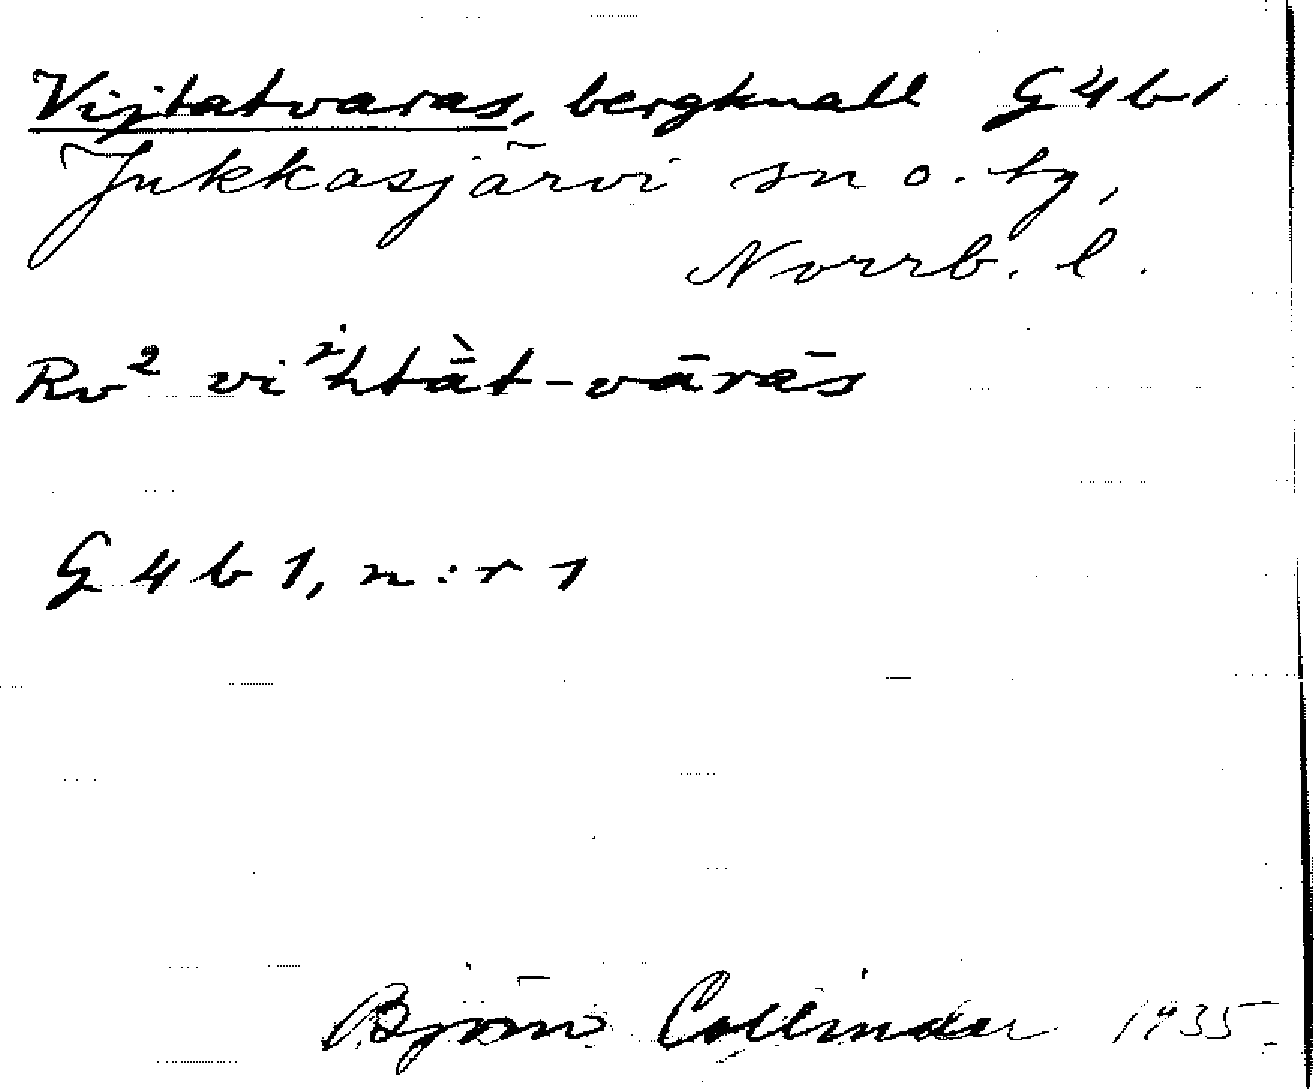 Vijtatvaras, bergknall G4b1
Jukkasjärvi sn o. tg,
Norrb. l.
Rv² viⁱhtàt-vārās
G 4 b 1, n:r 1
Björn Collinder 1935